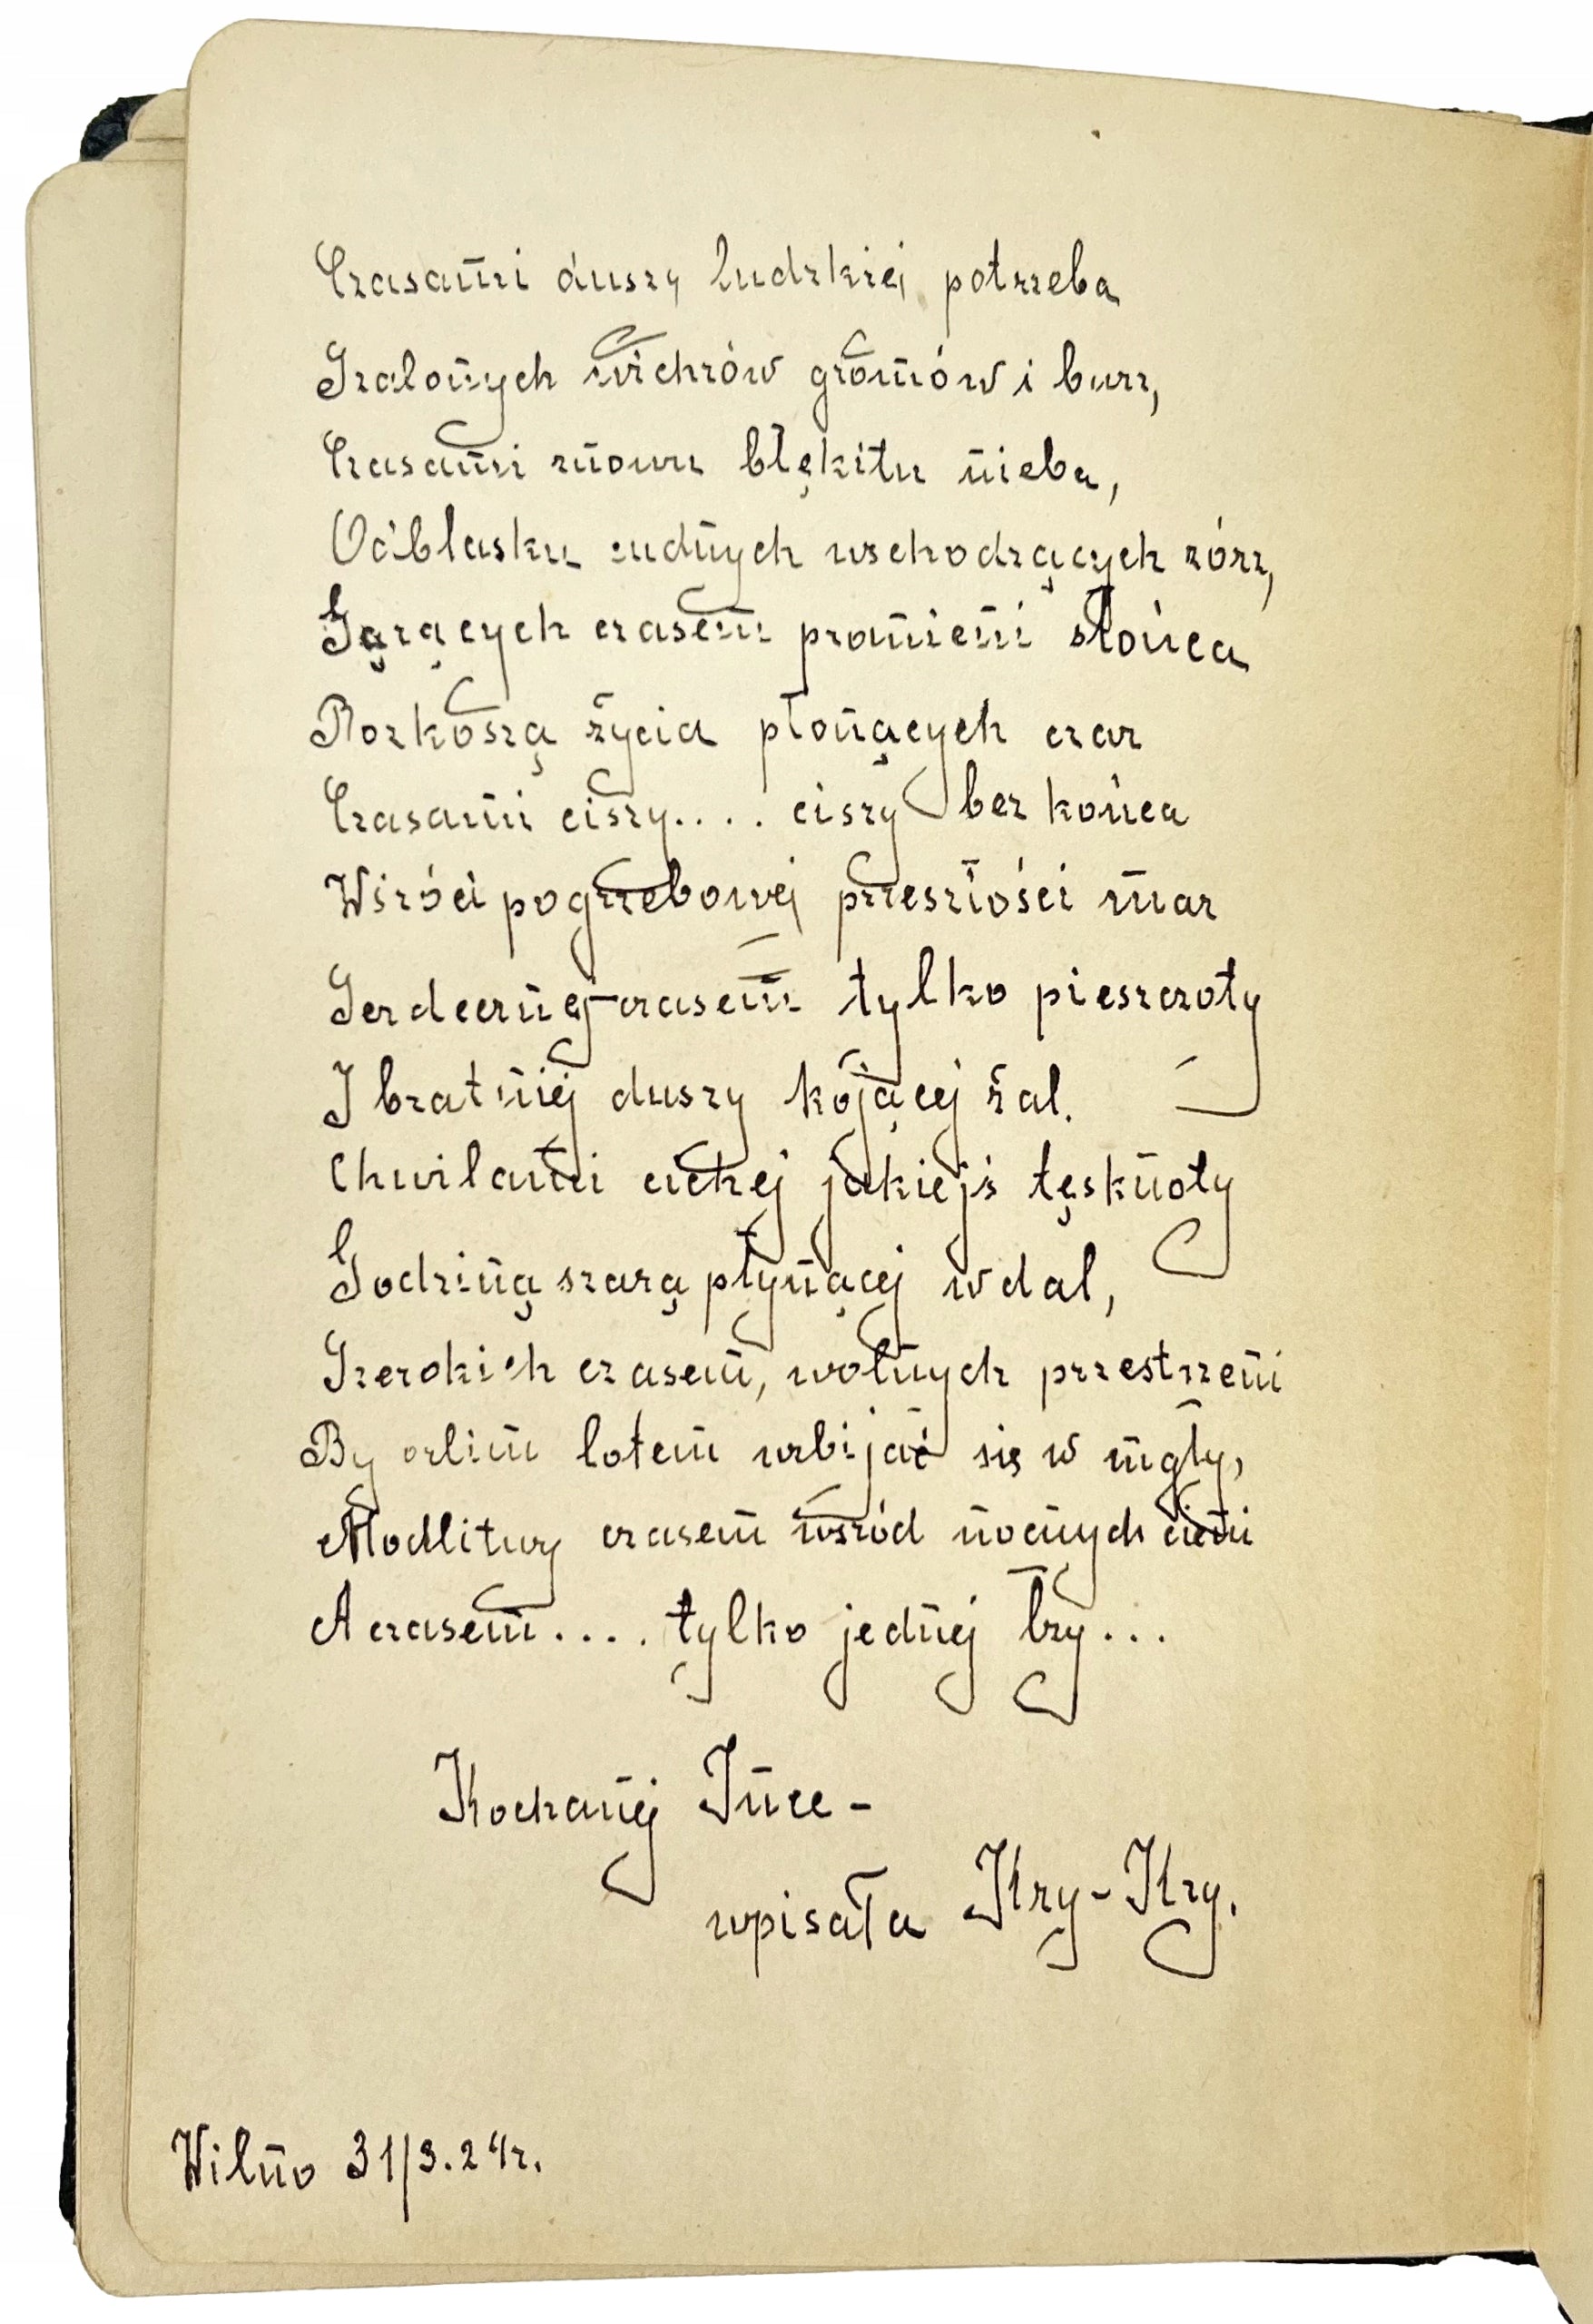 Czasami duszy ludzkiej potrzeba
Szalonych wichrów gromów i burz,
Czasami znowu błękitu nieba,
Odblasku cudnych wschodzących zórz,
Gorących czasem promieni słońca
Rozkoszą życia płonących czar
Czasami ciszy.... ciszy bez końca
Wśród pogrzebowej przeszłości mar
Serdecznej czasem tylko pieszczoty
I bratniej duszy kojącej żal.
Chwilami cichej jakiejś tęsknoty
Godziną szarą płynącej w dal,
Szerokich czasem, wolnych przestrzeni
By orlim lotem wbijać się w mgły,
Modlitwy czasem wśród nocnych cieni
A czasem.... tylko jednej łzy...
Kochanej Ince -
wpisała Kry-Kry.
Wilno 31/3.24r.